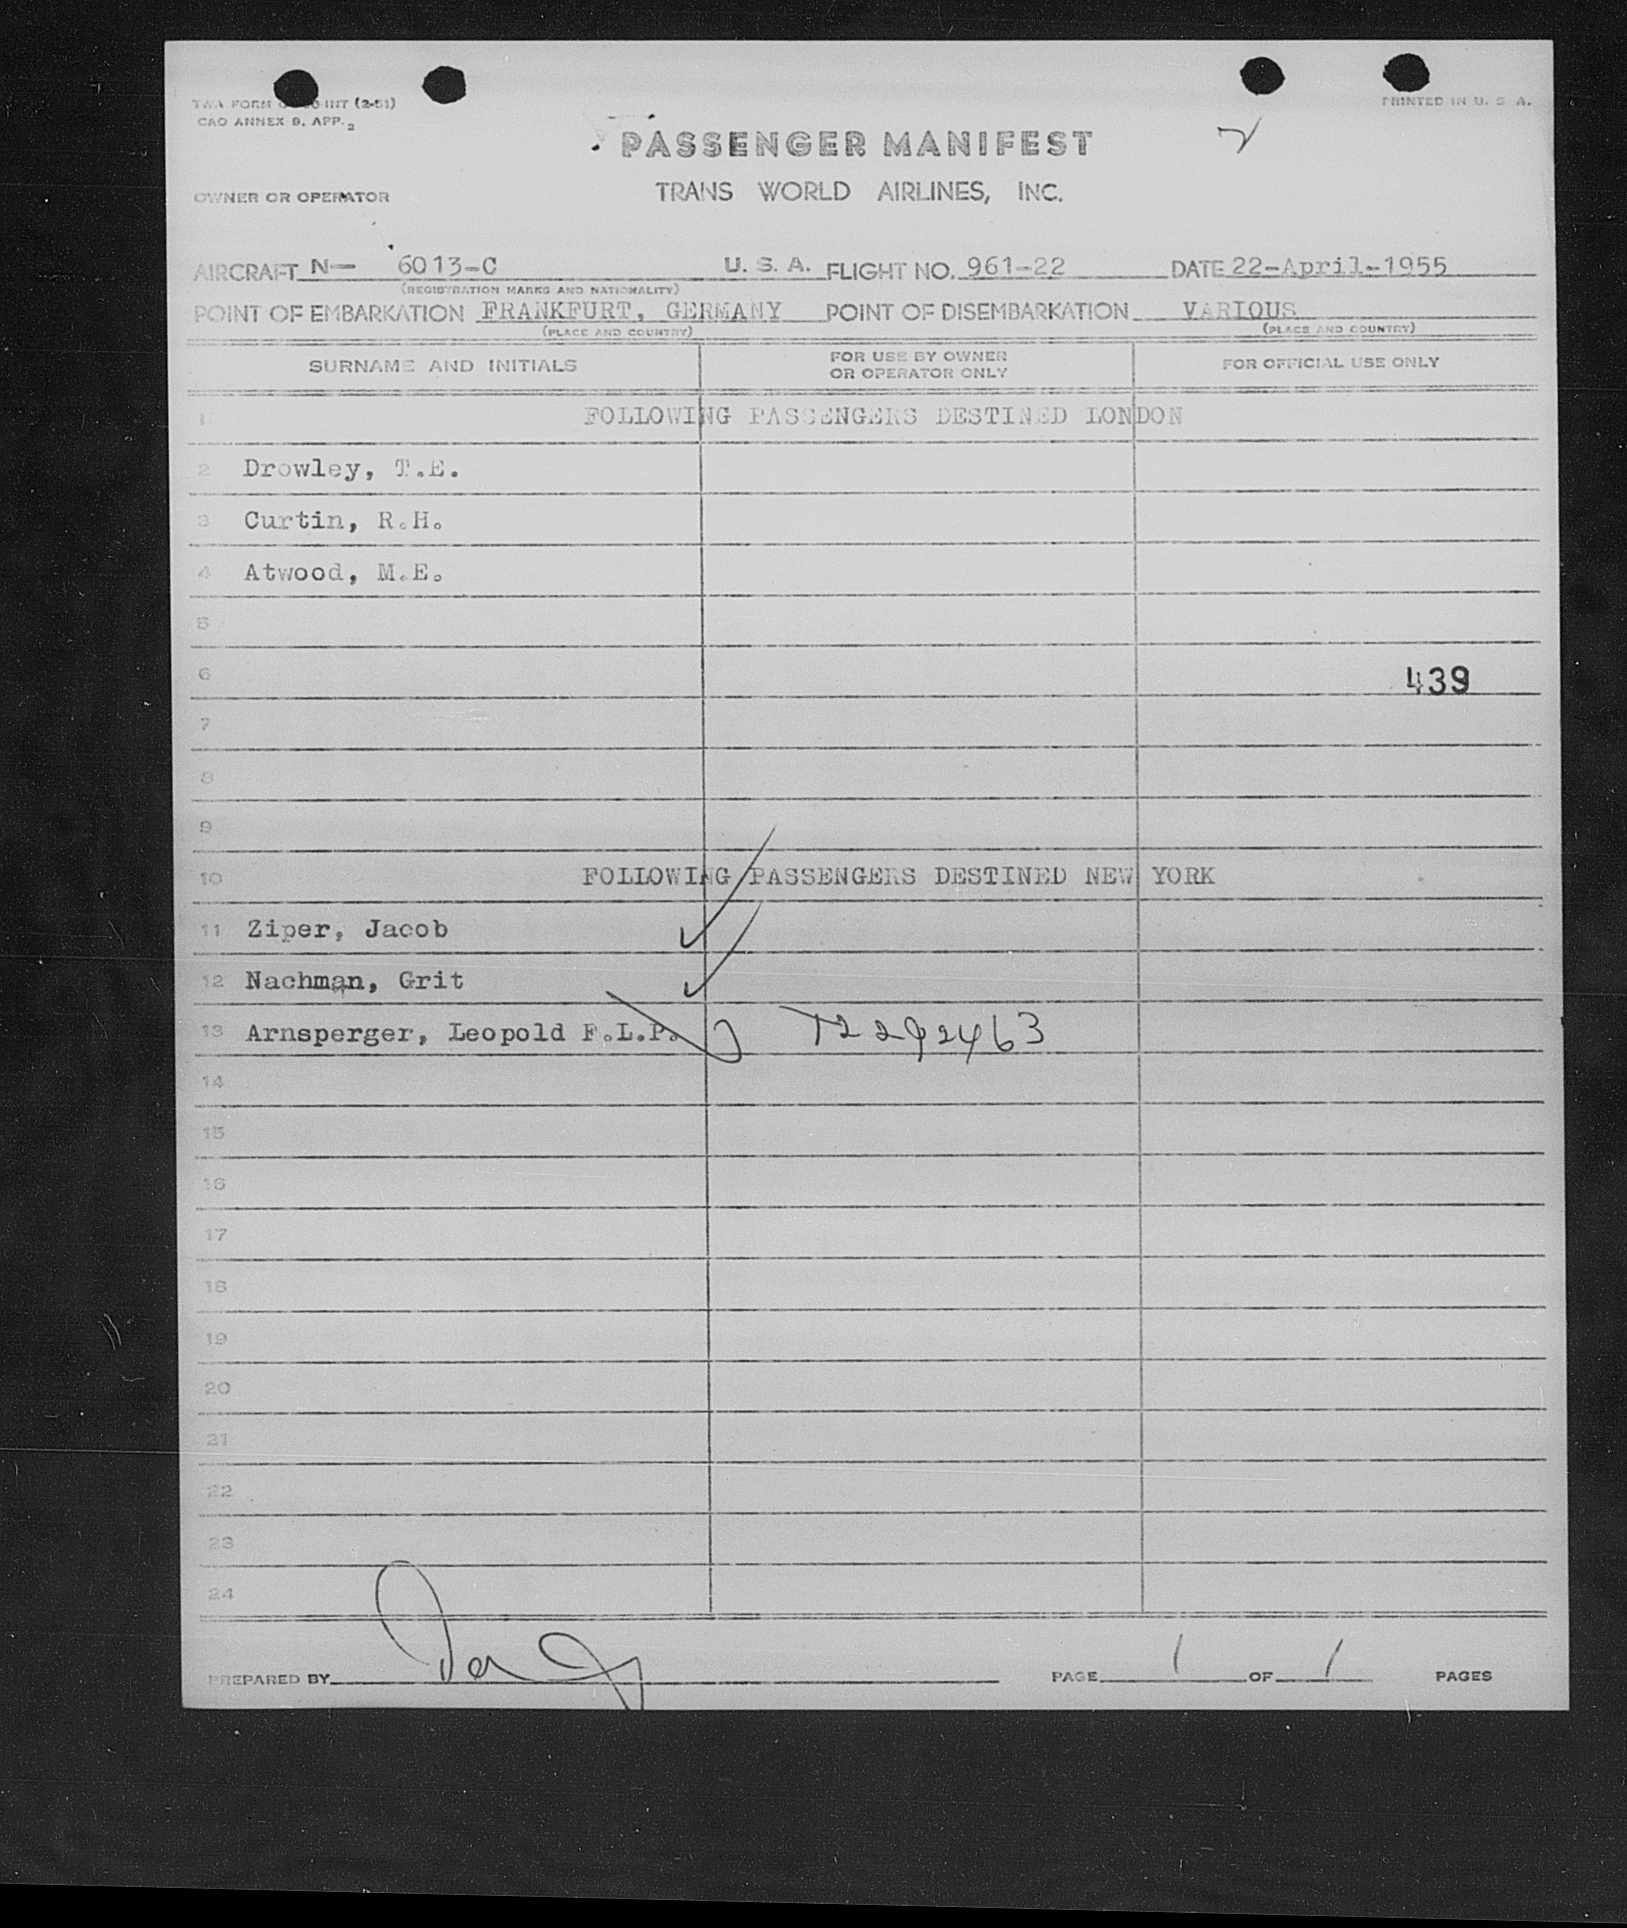 TWA FORM INT (2-51)
CAO ANNEX 9, APP. 2
PRINTED IN U. S. A.
PASSENGER MANIFEST
TRANS WORLD AIRLINES, INC.
OWNER OR OPERATOR
AIRCRAFT N- 6013-C U. S. A. FLIGHT NO. 961-22 DATE 22-April-1955
(REGISTRATION MARKS AND NATIONALITY)
POINT OF EMBARKATION FRANKFURT, GERMANY POINT OF DISEMBARKATION VARIOUS
(PLACE AND COUNTRY) (PLACE AND COUNTRY)
SURNAME AND INITIALS FOR USE BY OWNER OR OPERATOR ONLY FOR OFFICIAL USE ONLY
1 FOLLOWING PASSENGERS DESTINED LONDON
2 Drowley, T.E.
3 Curtin, R.H.
4 Atwood, M.E.
5
6 439
7
8
9
10 FOLLOWING PASSENGERS DESTINED NEW YORK
11 Ziper, Jacob
12 Nachman, Grit
13 Arnsperger, Leopold F.L.P. T2292463
14
15
16
17
18
19
20
21
22
23
24
PREPARED BY PAGE 1 OF 1 PAGES